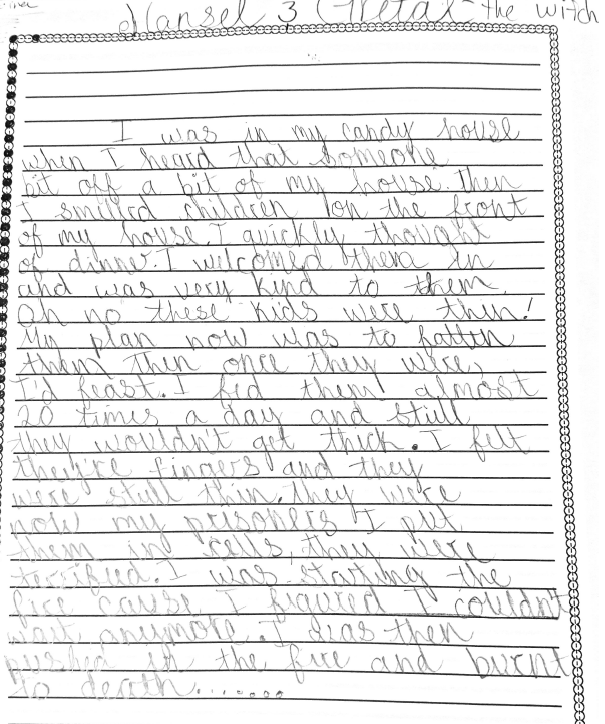 Hansel & Gretal - the witch
I was in my candy house
when I heard that someone
bit off a bit of my house. Then
I smelled children on the front
of my house. I quickly thought
of dinner. I welcomed them in
and was very kind to them.
Oh no these kids were thin!
My plan now was to fatten
them then once they were,
I'd feast. I fed them almost
20 times a day and still
they wouldn't get thick. I felt
they're fingers and they
were still thin. They were
now my prisoners I put
them in cells, they were
terrified. I was starting the
fire cause I figured I couldn't
wait anymore. I was then
pushed in the fire and burnt
to death........